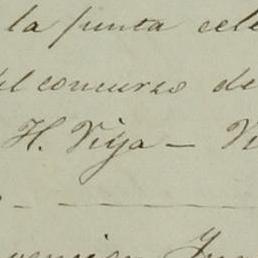 la punta cele
del concurzo de
H. Viya — Vi